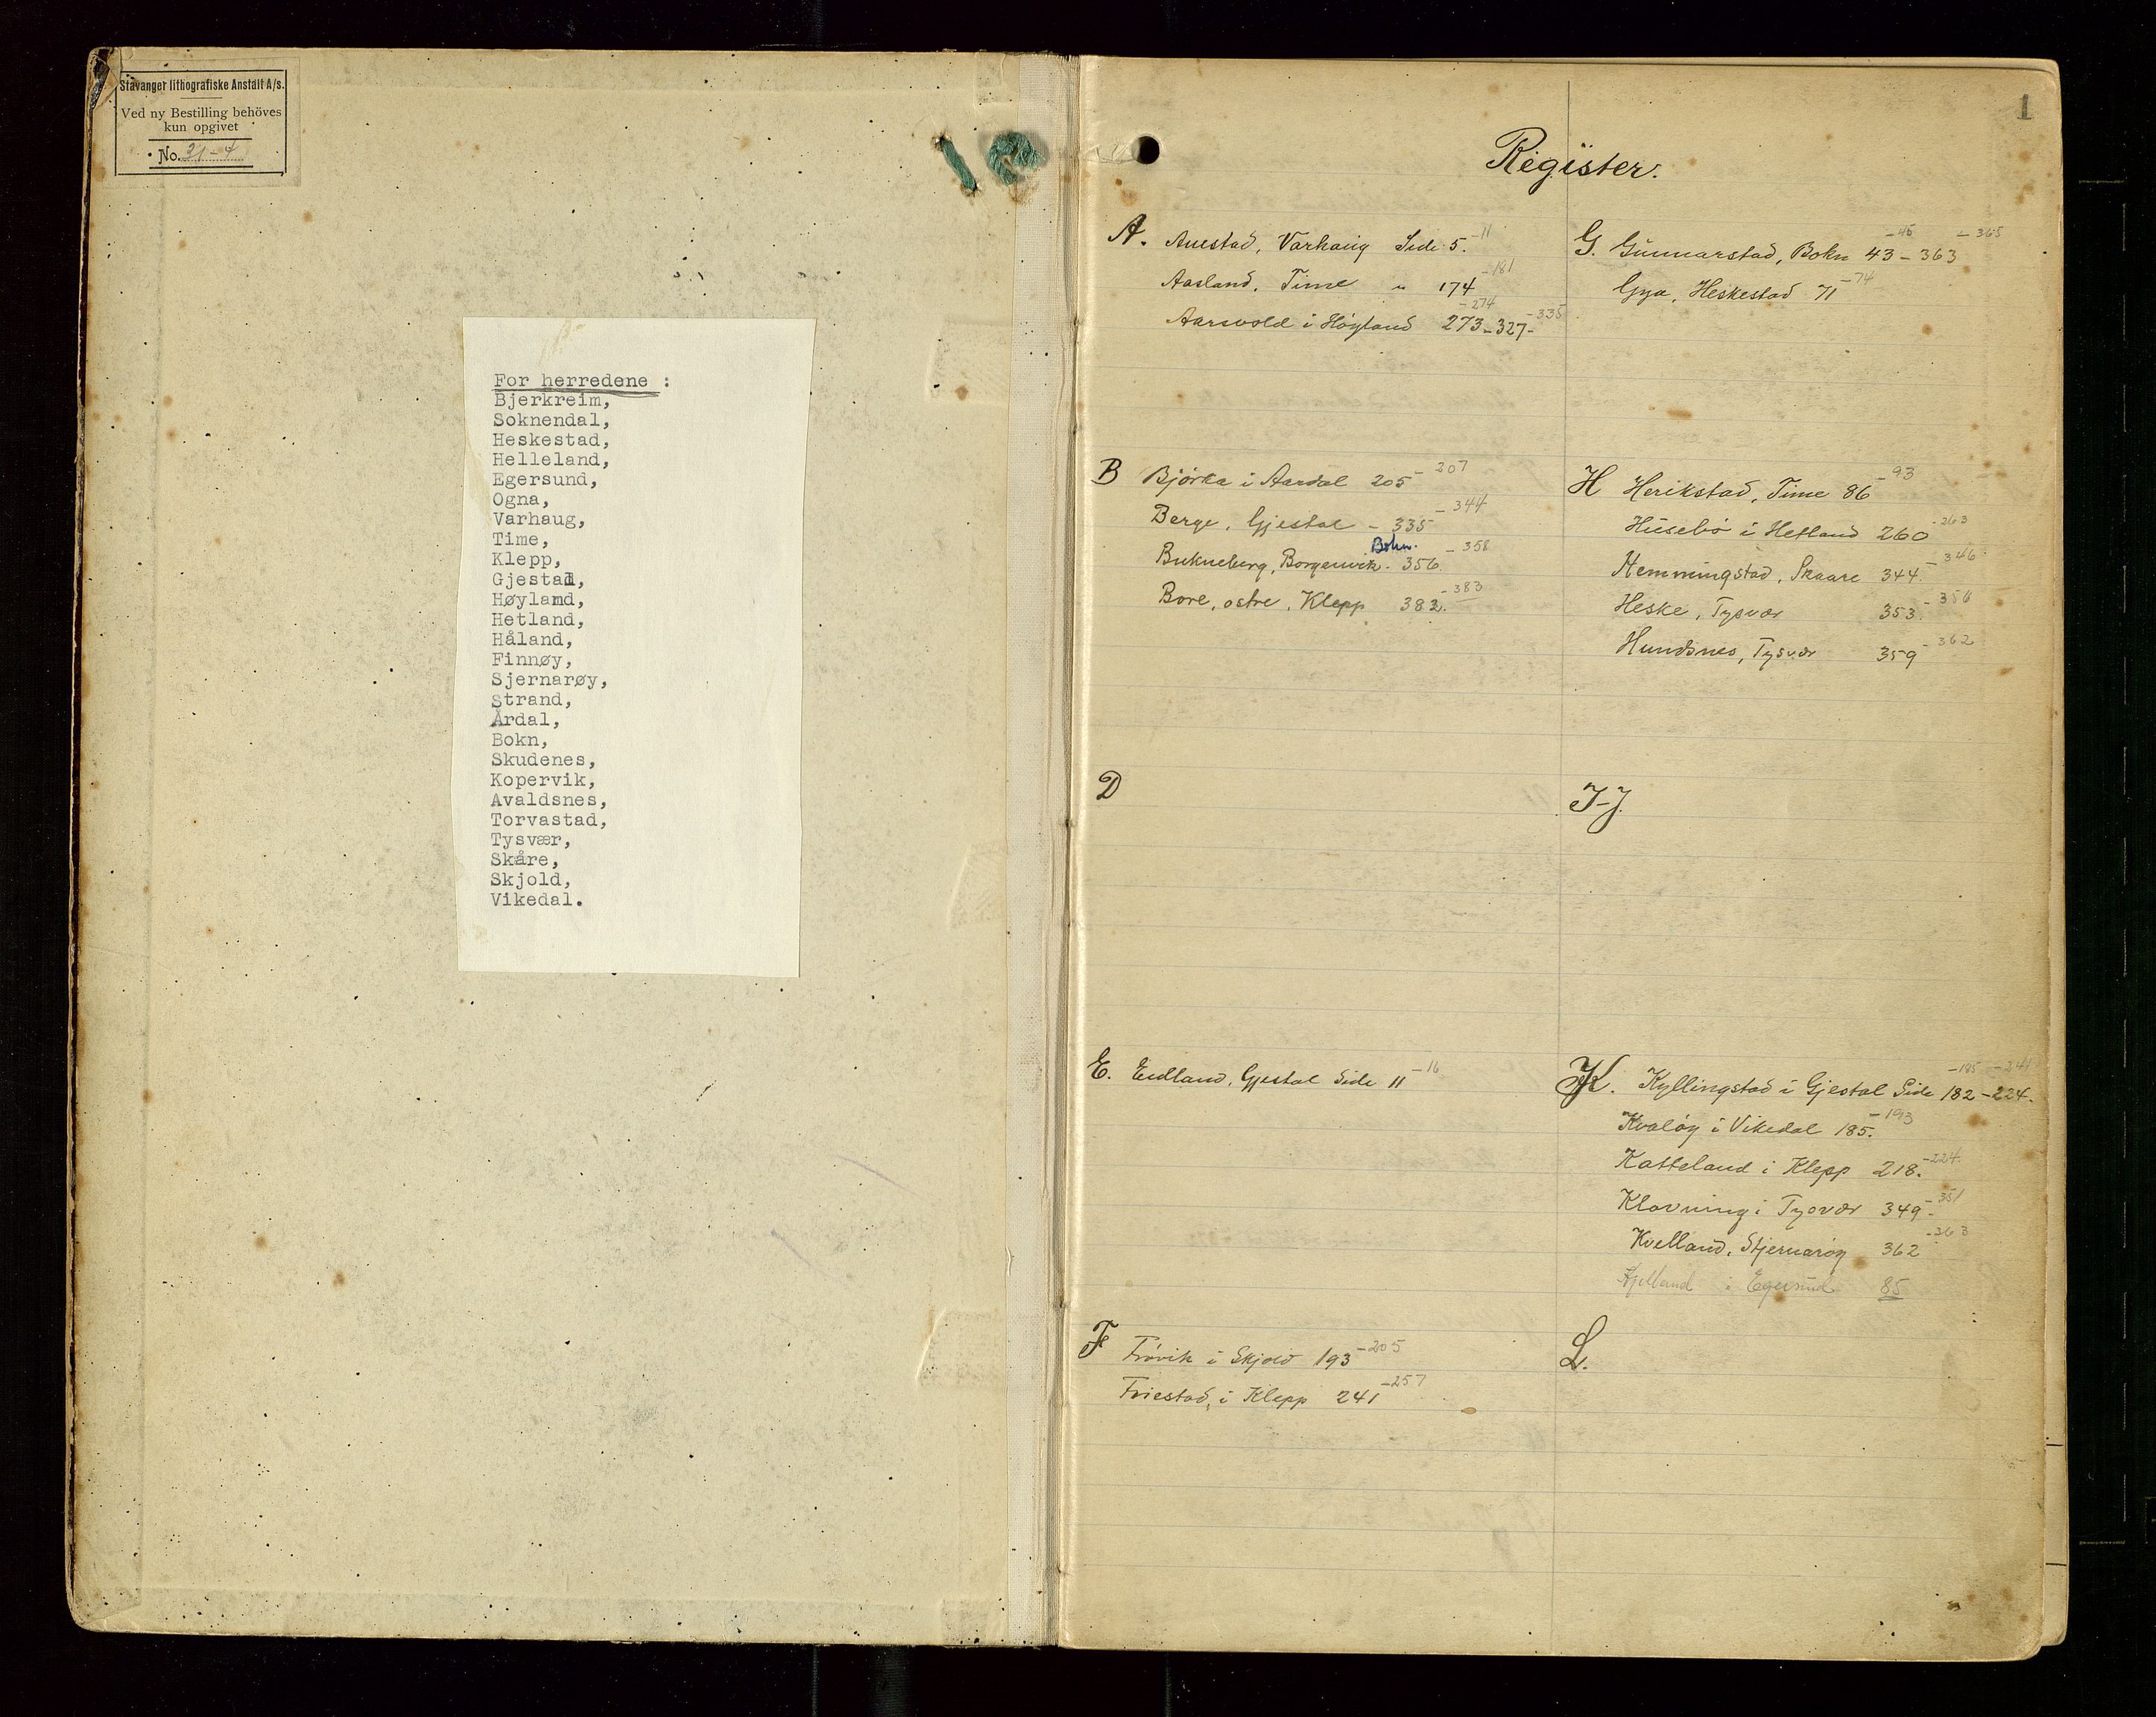 Stavanger lithografiske Anstalt A/s.
Ved ny Bestilling behöves
kun opgivet
No. 31-4
For herredene :
Bjerkreim,
Soknendal,
Heskestad,
Helleland,
Egersund,
Ogna,
Varhaug,
Time,
Klepp,
Gjestal,
Høyland,
Hetland,
Håland,
Finnøy,
Sjernarøy,
Strand,
Årdal,
Bokn,
Skudenes,
Kopervik,
Avaldsnes,
Torvastad,
Tysvær,
Skåre,
Skjold,
Vikedal.
1
Register.
A. Auestad, Varhaug Side 5. -11
Aasland, Time " 174 -181
Aarsvold i Höyland 273 -274 - 327 -335
B Björka i Aardal 205 - 207
Berge, Gjestal - 335 - 344
Bukneberg, Borgenvik. Bokn. 356. - 358
Bore, östre, Klepp 382. - 383
D
E. Eidland, Gjestal Side 11 -16
F Frövik i Skjold 193 -205
Friestad, i Klepp 241 -257
G. Gunnarstad, Bokn 43 -45 - 363 - 365
Gya, Heskestad 71 -74
H Herikstad, Time 86 - 93
Husebö i Hetland 260 -263
Hemmingstad, Skaare 344. - 346
Heske, Tysvær 353. - 356
Hundsnes, Tysvær 359 - 362
I-J.
K. Kyllingstad i Gjestal Side 182 -185 - 224. -241
Kvalöy i Vikedal 185. -193
Katteland i Klepp 218. -224
Klovning i Tysvær 349. - 351
Kvelland, Stjernaröy 362 -363
Kjelland i Egersund 85
L.